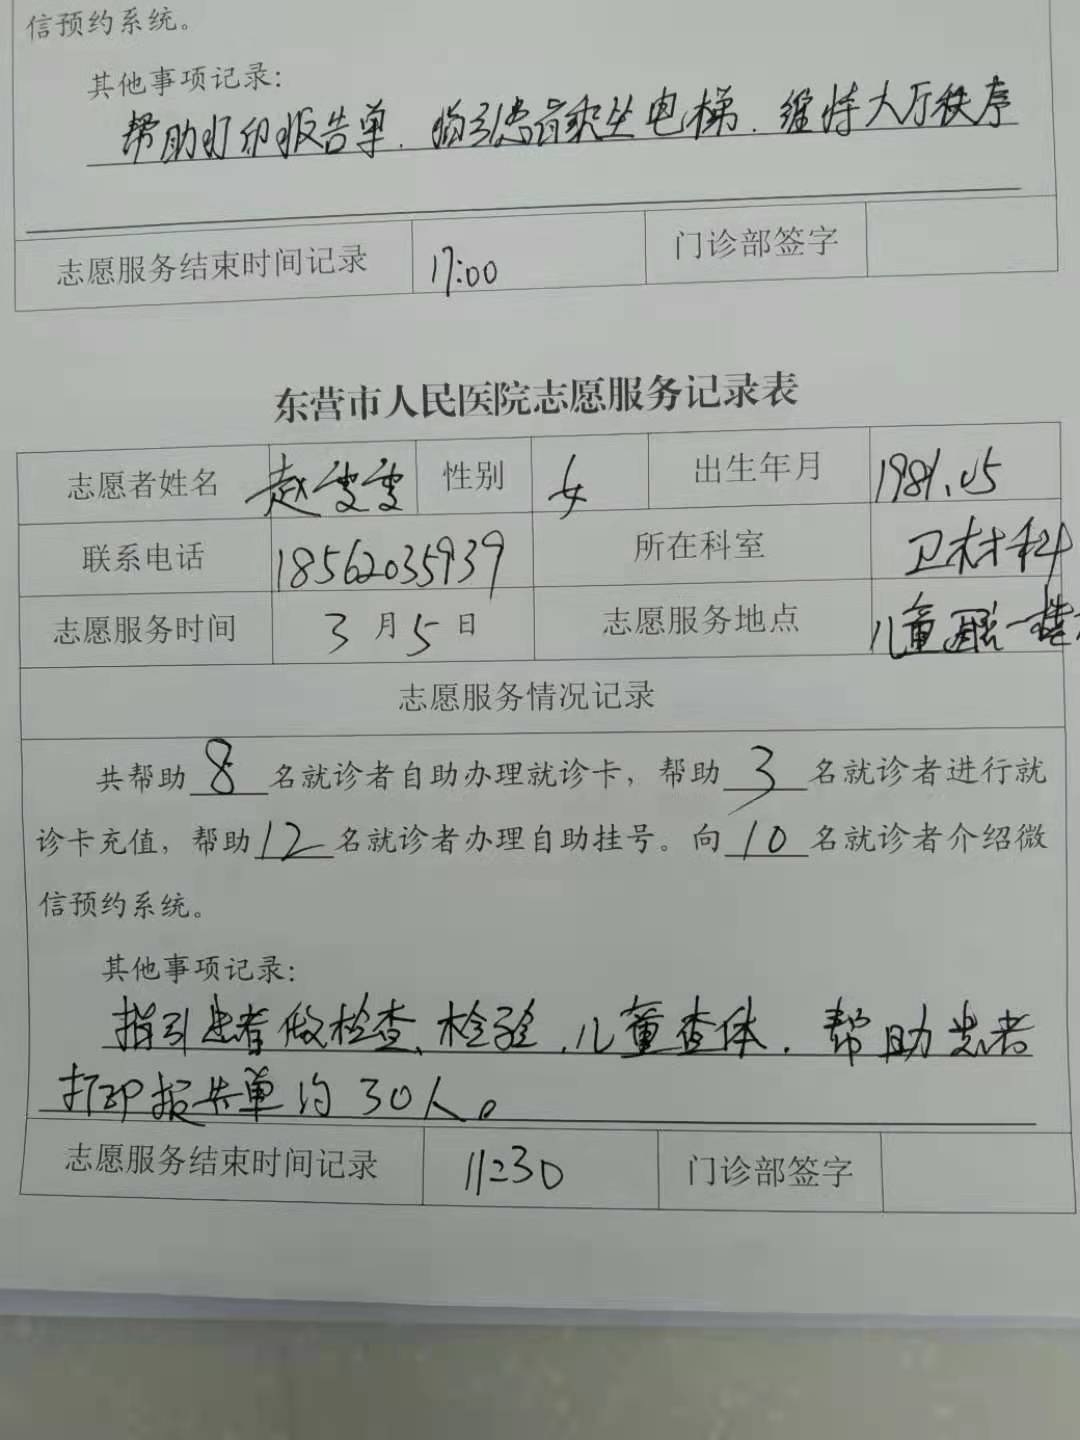 信预约系统。
其他事项记录：
帮助打印报告单，指引患者乘坐电梯，维持大厅秩序
志愿服务结束时间记录 17:00 门诊部签字
东营市人民医院志愿服务记录表
志愿者姓名 赵雯雯 性别 女 出生年月 1981.05
联系电话 18562035939 所在科室 卫材科
志愿服务时间 3月5日 志愿服务地点 儿童 一楼
志愿服务情况记录
共帮助8名就诊者自助办理就诊卡，帮助3名就诊者进行就
诊卡充值，帮助12名就诊者办理自助挂号。向10名就诊者介绍微
信预约系统。
其他事项记录：
指引患者做检查、检验，儿童查体，帮助患者
打印报告单约30人。
志愿服务结束时间记录 11:30 门诊部签字